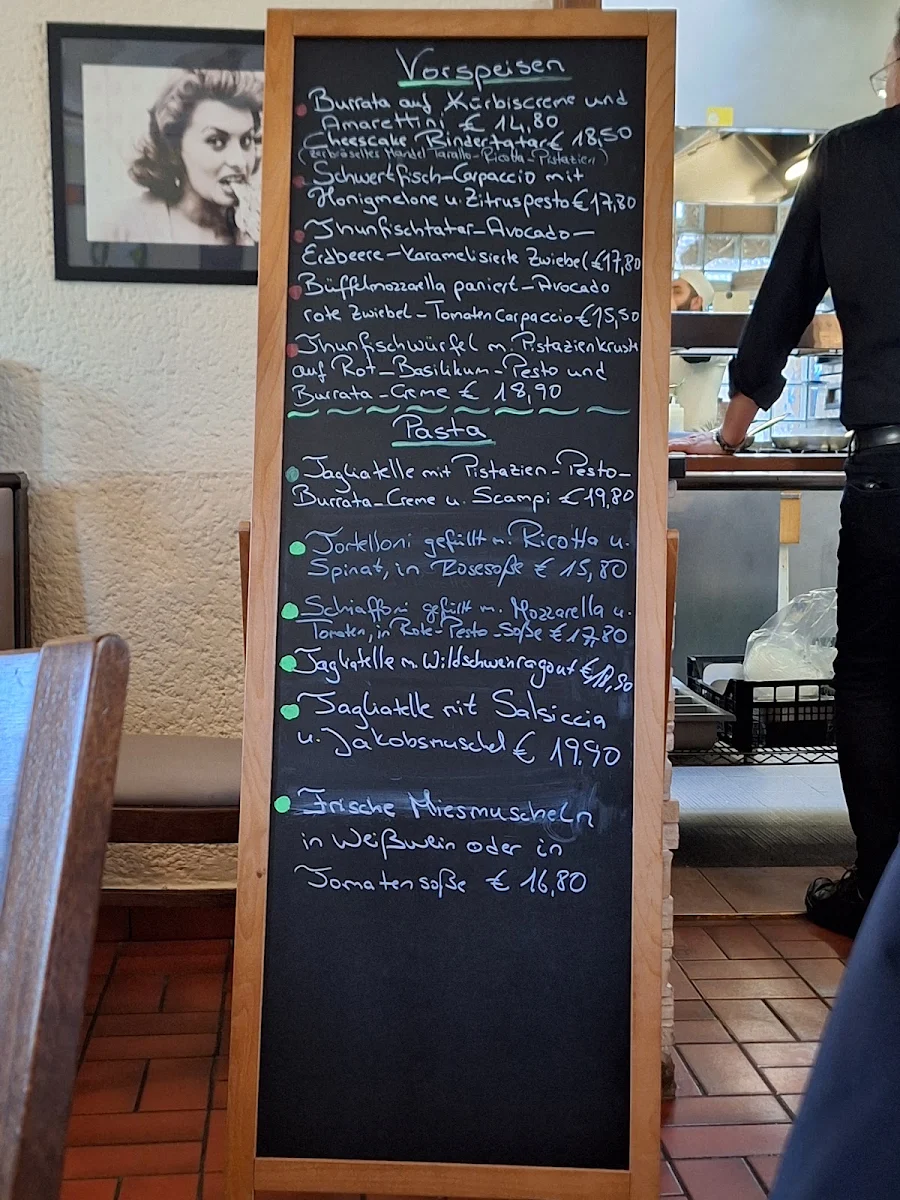 Vorspeisen
Burrata auf Kürbiscreme und
Amarettini € 14,80
Cheescake Rindertatar € 18,50
(zerbröseltes Mandel Tarallo-Ricotta-Pistazien)
Schwertfisch-Carpaccio mit
Honigmelone u. Zitruspesto € 17,80
Thunfischtatar-Avocado-
Erdbeere-Karamelisierte Zwiebel € 17,80
Büffelmozzarella paniert-Avocado
rote Zwiebel-Tomaten Carpaccio € 15,50
Thunfischwürfel m. Pistazienkruste
auf Rot-Basilikum-Pesto und
Burrata-Creme € 18,90
Pasta
Tagliatelle mit Pistazien-Pesto-
Burrata-Creme u. Scampi € 19,80
Tortelloni gefüllt m. Ricotta u.
Spinat, in Rosesoße € 15,80
Schiaffoni gefüllt m. Mozzarella u.
Tomaten, in Rote-Pesto-Soße € 17,80
Tagliatelle m. Wildschweinragout €
Tagliatelle mit Salsiccia
u. Jakobsmuschel € 19.90
Frische Miesmuscheln
in Weißwein oder in
Tomatensoße € 16,80